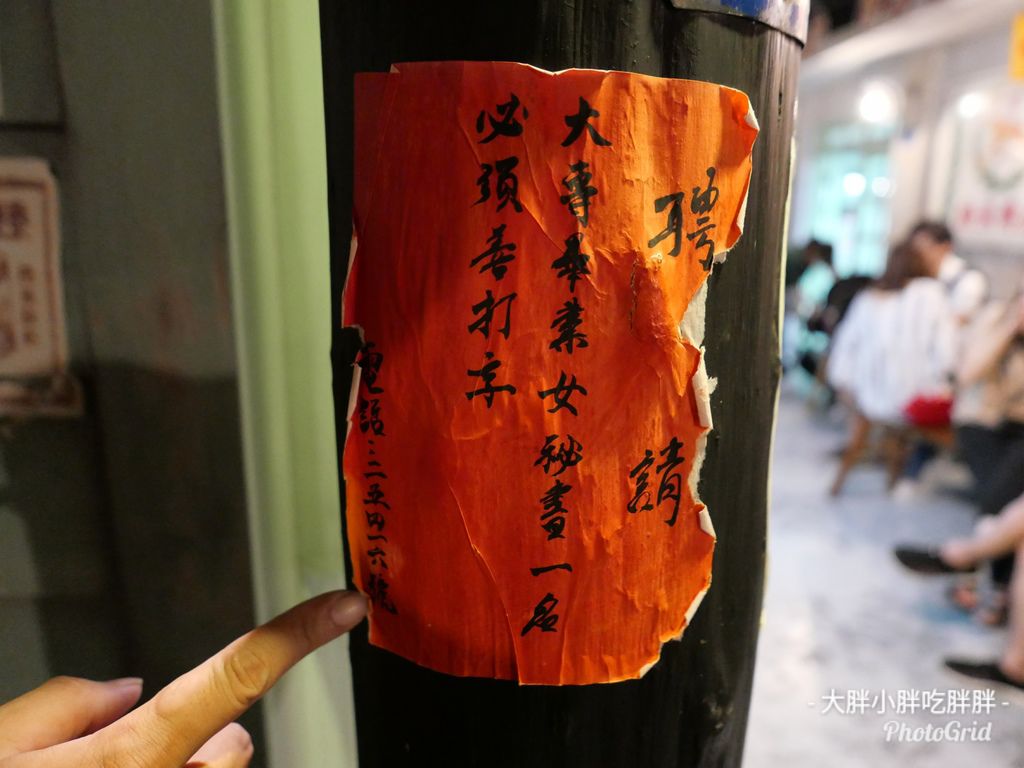 聘請
大專畢業女秘書一名
必須善打字
電話：二五四一六號
- 大胖小胖吃胖胖 -
PhotoGrid